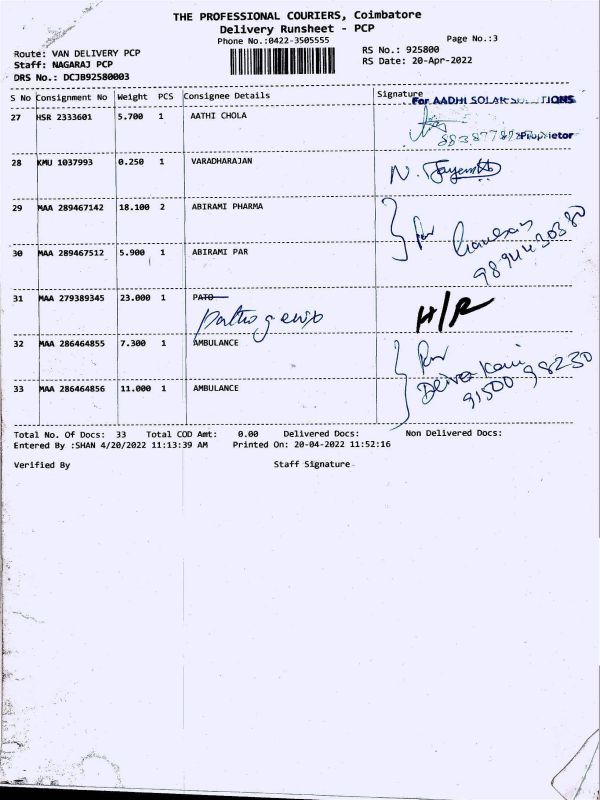 THE PROFESSIONAL COURIERS, Coimbatore
Delivery Runsheet - PCP
Phone No.:0422-3505555
Page No.:3
Route: VAN DELIVERY PCP
RS No.: 925800
Staff: NAGARAJ PCP
RS Date: 20-Apr-2022
DRS No.: DCJB92580003
S No Consignment No Weight PCS Consignee Details Signature
For AADHI SOLAR
27 HSR 2333601 5.700 1 AATHI CHOLA
Proprietor
28 KMU 1037993 0.250 1 VARADHARAJAN N.
29 MAA 289467142 18.100 2 ABIRAMI PHARMA
9894430380
30 MAA 289467512 5.900 1 ABIRAMI PAR
31 MAA 279389345 23.000 1 PATO
H/R
32 MAA 286464855 7.300 1 AMBULANCE
91500 98230
33 MAA 286464856 11.000 1 AMBULANCE
Total No. Of Docs: 33 Total COD Amt: 0.00 Delivered Docs: Non Delivered Docs:
Entered By :SHAN 4/20/2022 11:13:39 AM Printed On: 20-04-2022 11:52:16
Verified By Staff Signature